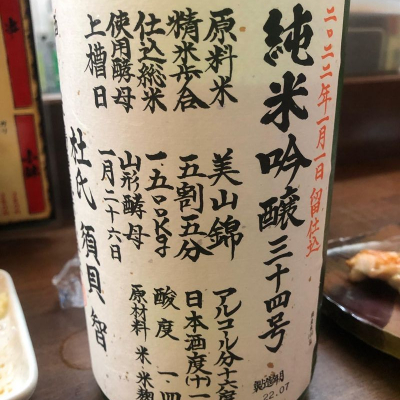 二〇二二年一月一日留仕込
純米吟醸三十四号
原料米 美山錦
精米歩合 五割五分
仕込総米 一、五〇〇kg
使用酵母 山形酵母
上槽日 一月二十六日
杜氏 須貝 智
アルコール分十六度
日本酒度(十一
酸度 一・四
原材料 米・米麹
製造年月
22.07